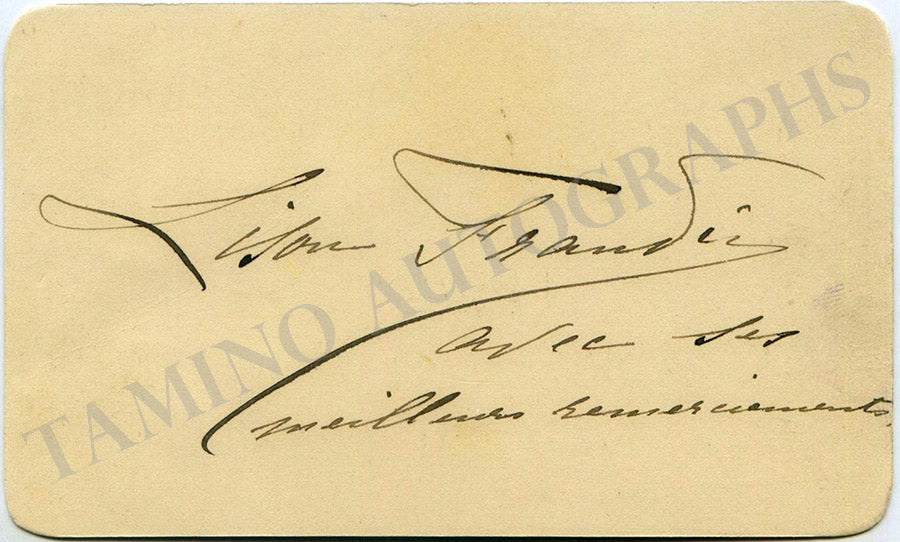 Lison Frandin
avec ses
meilleurs remerciements.
TAMINO AUTOGRAPHS